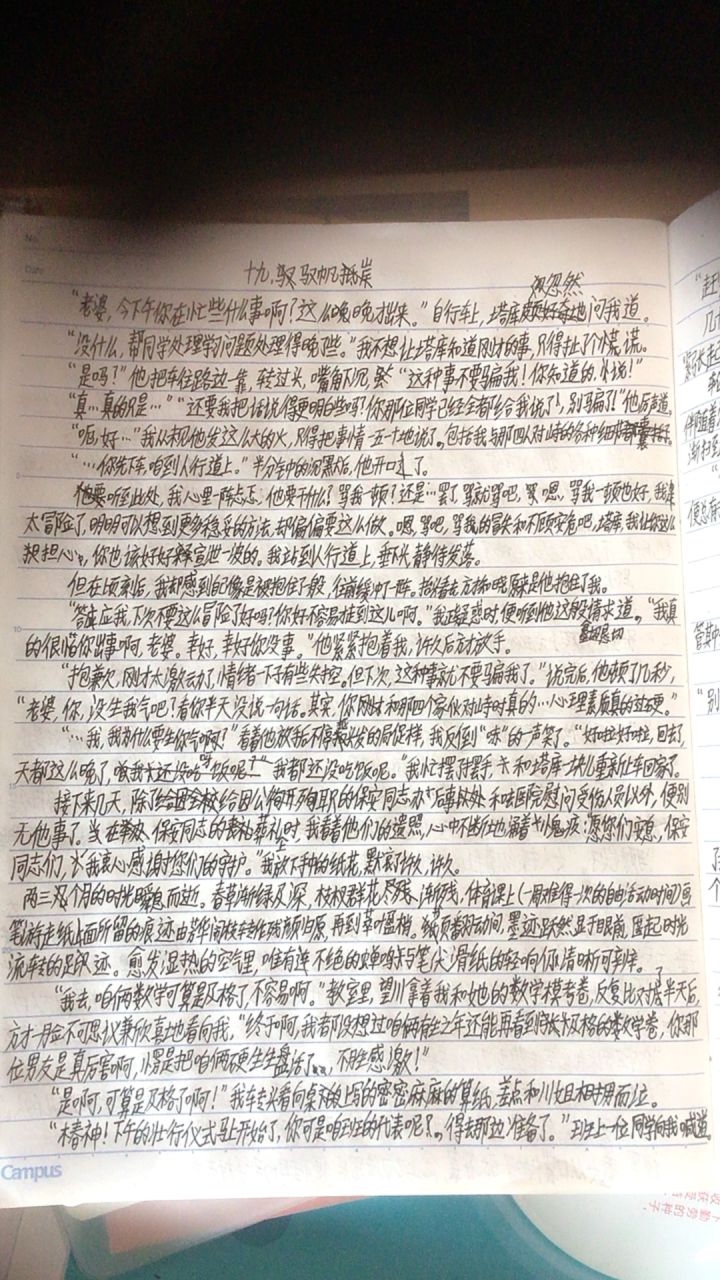 No.
Date
十九、驭驭帆抵岸
忽然
"老婆，今下午你在忙些什么事啊？这么晚晚才出来。"自行车上，塔库问我道。
"没什么，帮同学处理学习问题处理得晚了些。"我不想让塔库知道刚才的事，只得扯了个小谎。
"是吗？"他把车往路边一靠，转过头，嘴角下沉，"这种事不要骗我！你知道的，小说！"
"真…真的只是…""还要我把话说得更明白些吗？你那位同学已经全都给我说了，别骗了！"他厉声道。
"呃，好…"我从未见他发这么大的火，只得把事情一五一十地说了，包括我与那四人对峙的各种细节
"…你先下车，咱到人行道上。"半分钟的沉默后，他开口了。
听到此处，我心里一阵忐忑，他要干什么？骂我一顿？还是…罢了，骂就骂吧，嗯，骂我一顿也好，我
太冒险了，明明可以想到更多稳妥的方法，却偏偏要这么做。嗯，骂吧，骂我的冒失和不顾安危吧，塔库，我让你这么
担心，你也该好好宣泄一波的。我站到人行道上，垂头静待发落。
但在顷刻后，我却感到自己像是被抱住了般，往前缓冲了一阵。抬头看去方才知晓原来是他抱住了我。
"答应我下次不要这么冒险了好吗？你好不容易挺到这儿啊。"我正疑惑时，便听到他这般请求道。"我真
的很怕你出事啊，老婆。幸好，幸好你没事。"他紧紧抱着我，许久后方才放手。
"抱歉，刚才太激动了，情绪一下子有些失控。但下次，这种事就不要骗我了。"说完后，他顿了几秒，
"老婆，你，没生我气吧？看你半天没说一句话。其实，你刚才和那四个家伙对峙时真的…心理素质真的过硬。"
"…我，我为什么要生你气啊？"看着他放手后不停散发的局促样，我反倒"咻"的一声笑了。"好啦好啦，回去了，
天都这么晚了，我都还没吃饭呢。"我忙摆了摆手，和塔库一块儿重新上车回家了。
接下来几天，除了给因公殉职的保安同志办后事以及去医院慰问受伤人员以外，便别
无他事了。当在保安同志的葬礼时，我看着他们的遗照，心中不断地涌着愧疚：愿您们安息，保安
同志们，我衷心感谢您们的守护。"我放下手中的纸花，默哀了许久，许久。
两三个月的时光瞬息而逝。春草渐绿及深，枝桠群花渐残，体育课上（一周难得一次的自由活动时间）画
笔游走纸上面所留的痕迹由繁华闹枝转作残颜归原，再到草叶盈梢。纸页翻动间，墨迹跃然显于眼前，匿起时光
流转的足迹。愈发湿热的空气里，唯有连不绝的蝉鸣与笔尖滑纸的轻响依清晰可辨。
"我去，咱俩数学可算是及格了，不容易啊。"教室里，望川拿着我和她的数学模考卷，反复比对了半天后，
方才一脸不可思议兼欣喜地看向我，"终于啊，我都没想过咱俩有生之年还能再看到张及格的数学卷，你那
位男友是真厉害啊，愣是把咱俩硬生生盘活了，不甚感激！"
"是啊，可算是及格了啊！"我转头看向桌上写的密密麻麻的算纸，差点和川姐相拥而泣。
"椿神！下午的壮行仪式马上开始了，你可是咱班的代表呢，得去那边准备了。"班上一位同学向我喊道。
Campus